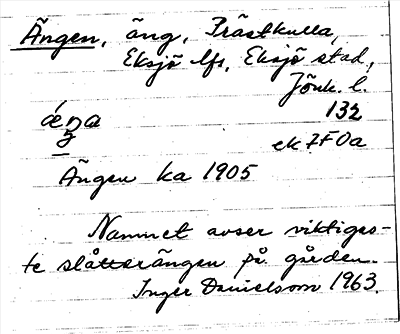 Ängen, äng, Prästkulla,
Eksjö lfs, Eksjö stad,
Jönk. l.
132
ek 7F0a
Ängen ka 1905
Namnet avser viktigas-
te slåtterängen på gården.
Inger Danielsson 1963.